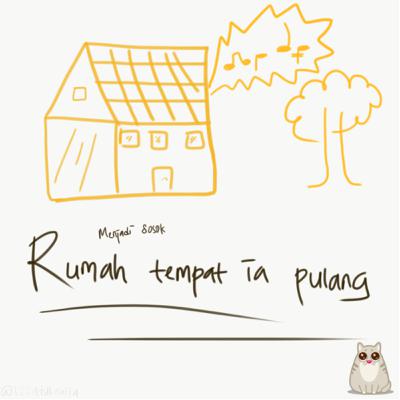 Menjadi sosok
Rumah tempat ia pulang